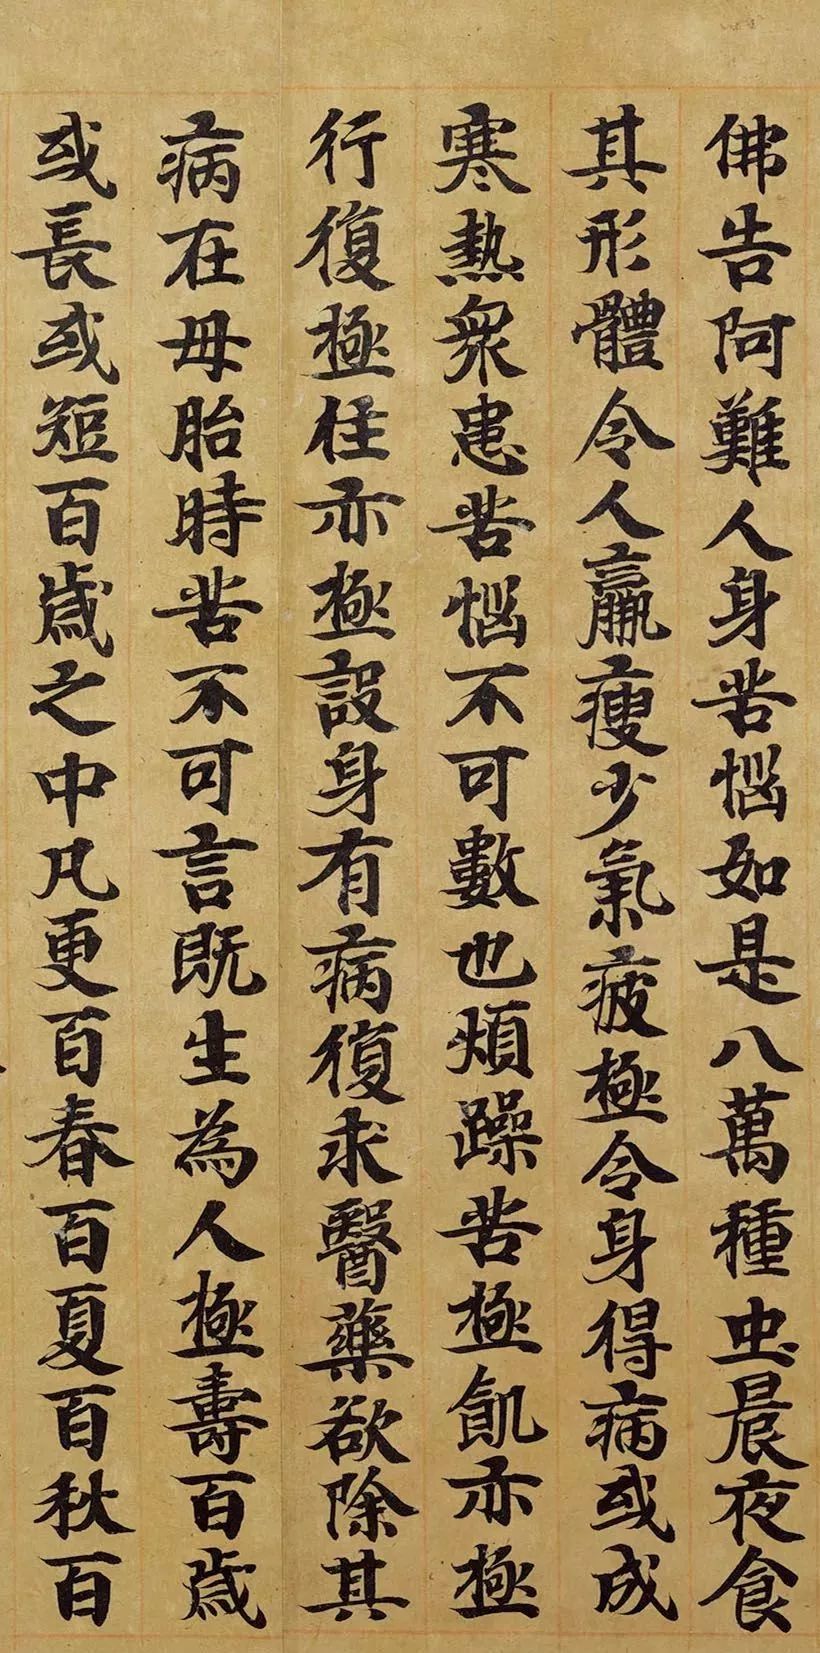 佛告阿難人身苦惱如是八萬種虫晨夜食
其形體令人羸瘦少氣疲極令身得病或成
寒熱衆患苦惱不可數也煩躁苦極飢亦極
行復極住亦極設身有病復求醫藥欲除其
病在母胎時苦不可言既生為人極壽百歲
或長或短百歲之中凡更百春百夏百秋百